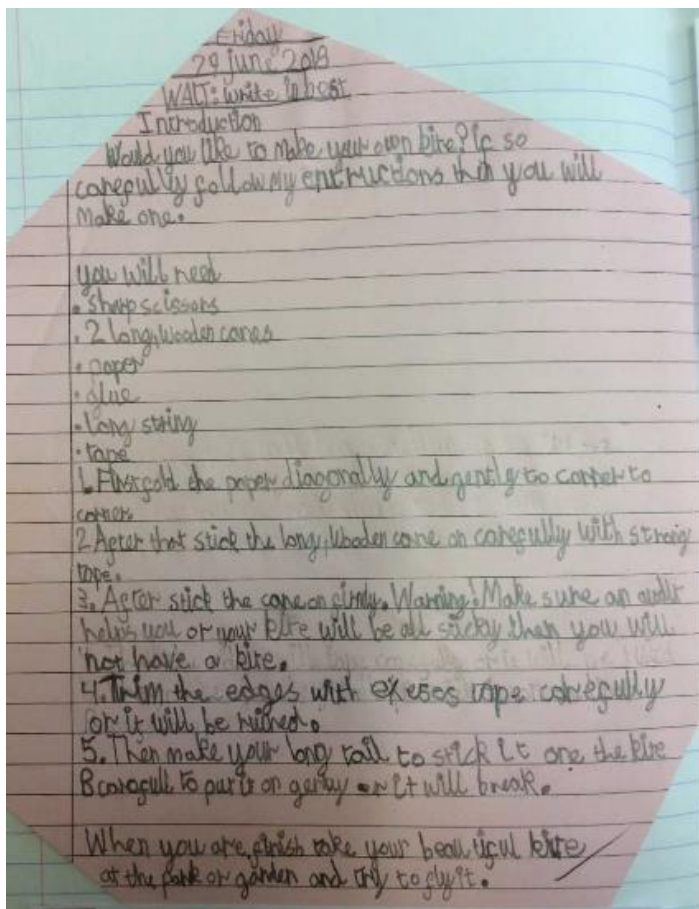 Friday
29 june 2018
WALT: write in best
Introduction
Would you like to make your own kite? if so
carefully follow my entructions then you will
make one.
you will need
• sharp scissors
• 2 long, wooden canes
• paper
• glue
• long string
• tape
1. First fold the paper diagonally and gently to corner to
corner
2. After that stick the long, wooden cane on carefully with strong
tape.
3. After stick the cane on firmly. Warning! Make sure an adult
helps you or your kite will be all sticky then you will
not have a kite.
4. Trim the edges with exeses tape carefully
or it will be ruined.
5. Then make your long tail to stick it one the kite
B carefull to put it on gentley or it will break.
When you are finish take your beautiful kite
at the park or garden and try to fly it.